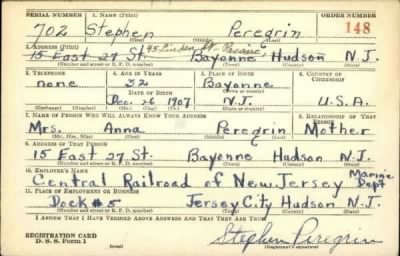 SERIAL NUMBER 1. NAME (Print) ORDER NUMBER
702 Stephen Peregrin 148
2. ADDRESS (Print)
15 East 27 St. Bayonne Hudson N.J.
(Number and street or R. F. D. number) (Town) (County) (State)
3. TELEPHONE 4. AGE IN YEARS 5. PLACE OF BIRTH 6. COUNTRY OF CITIZENSHIP
none 32 Bayonne
DATE OF BIRTH
Dec. 26 1907 N.J. U.S.A.
(Exchange) (Number) (Mo.) (Day) (Yr.) (State or country)
7. NAME OF PERSON WHO WILL ALWAYS KNOW YOUR ADDRESS 8. RELATIONSHIP OF THAT PERSON
Mrs. Anna Peregrin Mother
(Mr., Mrs., Miss) (First) (Middle) (Last)
9. ADDRESS OF THAT PERSON
15 East 27 St. Bayonne Hudson N.J.
(Number and street or R. F. D. number) (Town) (County) (State)
10. EMPLOYER'S NAME
Central Railroad of New Jersey Marine Dept
11. PLACE OF EMPLOYMENT OR BUSINESS
Dock #5 Jersey City Hudson N.J.
(Number and street or R. F. D. number) (Town) (County) (State)
I AFFIRM THAT I HAVE VERIFIED ABOVE ANSWERS AND THAT THEY ARE TRUE.
REGISTRATION CARD
D. S. S. Form 1 (over) Stephen Peregrin
(Registrant's signature)